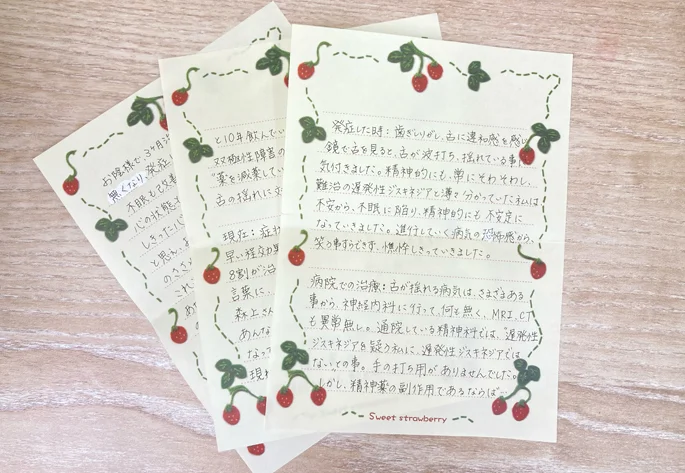 お陰様で、3ヶ月
無くなり、発症
不眠も改善
心の状態
しきったパ
と思い、
のささ
これ
め
と10年飲んでい
双極性障害の
薬を減薬してい
舌の揺れに効
現在：症状
早い程効果
8割が治
言葉に、
森上さん
あんな
なっ
現れ
発症した時：歯ぎしりがし、舌に違和感を感じ
鏡で舌を見ると、舌が波打ち、揺れている事
気付きました。精神的にも、常にそわそわし、
難治の遅発性ジスキネジアと薄々分かっていた私は
不安から、不眠に陥り、精神的にも不安定に
なっていきました。進行していく病気の恐怖感から、
笑う事すらできず、憔悴しきっていきました。
病院での治療：舌が揺れる病気は、さまざまある
事から、神経内科に行って、何も無く、MRI、CT
も異常無し。通院している精神科では、遅発性
ジスキネジアを疑う私に、遅発性ジスキネジアでは
ないとの事。手の打ち用がありませんでした。
しかし、精神薬の副作用であるならば…
Sweet strawberry